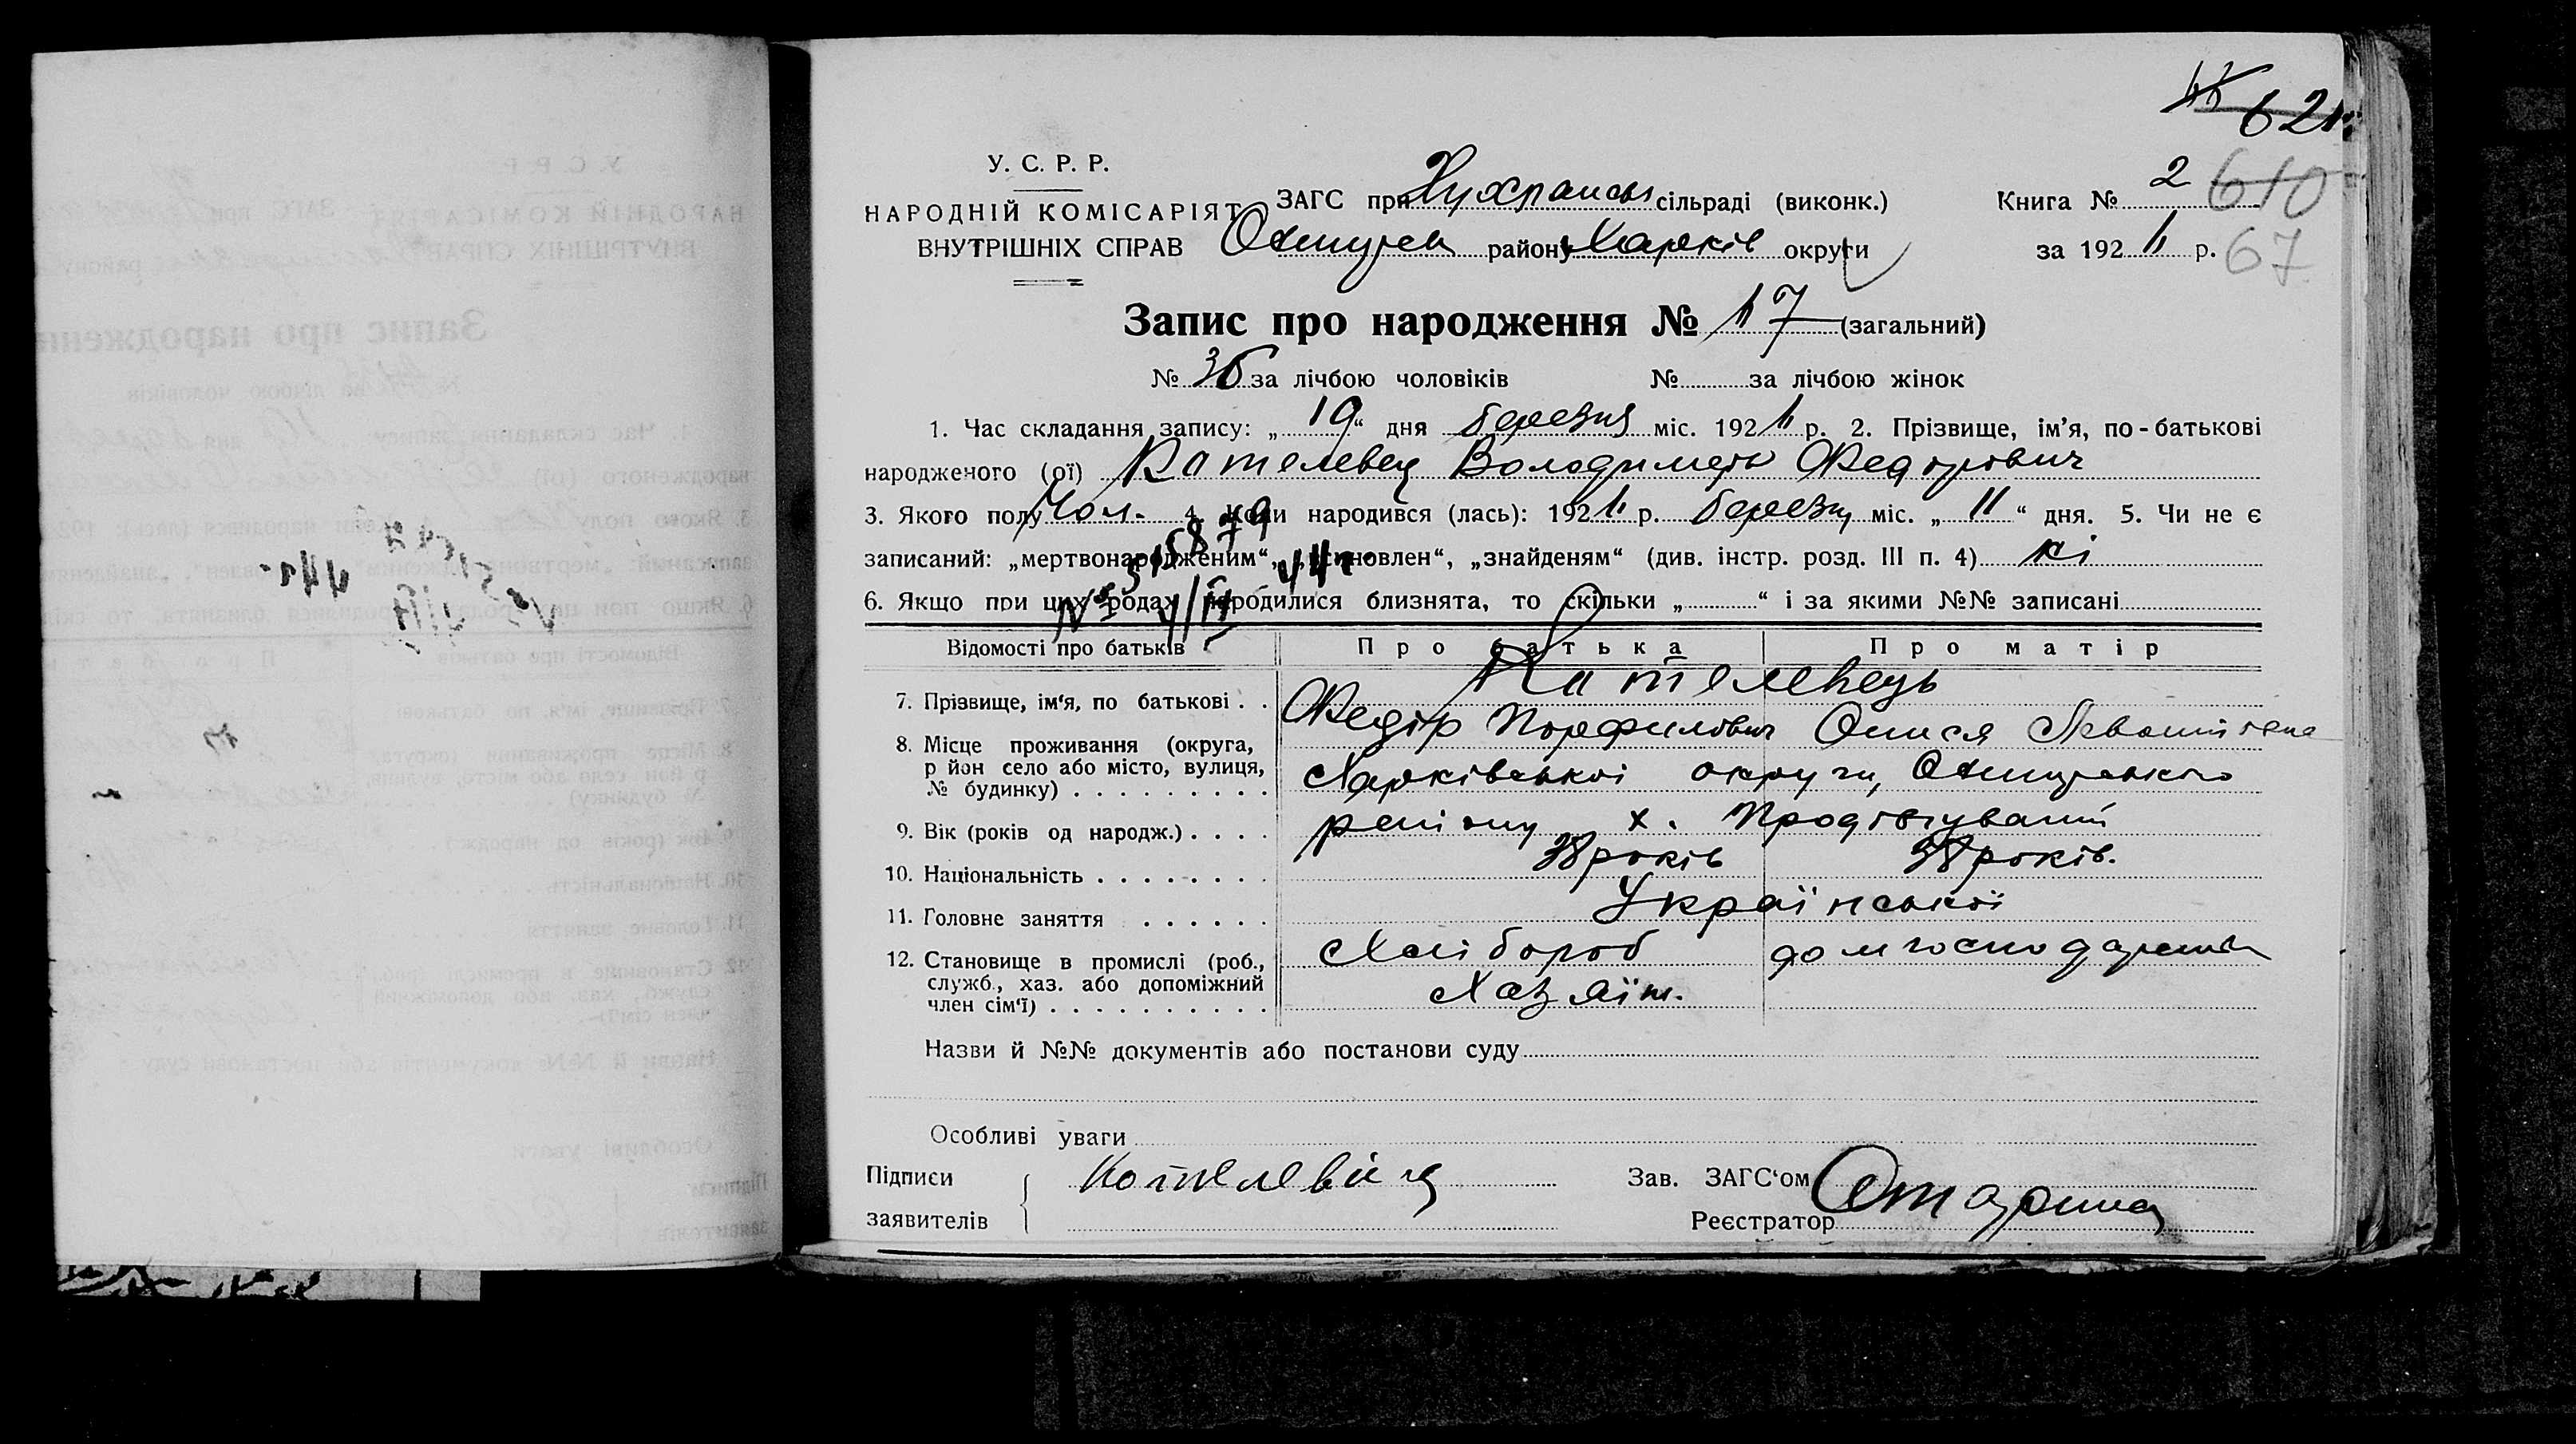 621
У. С. Р. Р.
НАРОДНІЙ КОМІСАРІЯТ
ВНУТРІШНІХ СПРАВ
ЗАГС при Хухрянськ сільраді (виконк.)
Охтирськ району Харків округи
Книга № 2 610
за 192 р. 67
Запис про народження № 17 (загальний)
№ 36 за лічбою чоловіків № за лічбою жінок
1. Час складання запису: „19“ дня березня міс. 192 р. 2. Прізвище, ім’я, по-батькові
народженого (ої) Кателевец Володимеръ Федорович
3. Якого полу Чол. 4. Коли народився (лась): 192 р. березня міс. „11“ дня. 5. Чи не є
записаний: „мертвонародженим“, „усиновлен“, „знайденям“ (див. інстр. розд. III п. 4) ні
6. Якщо при цих родах народилися близнята, то скільки „ “ і за якими №№ записані
Відомості про батьків
Про батька
Про матір
7. Прізвище, ім‘я, по батькові . .
Кателевець
Федір Порфилович
8. Місце проживання (округа,
р йон село або місто, вулиця,
№ будинку) . . . . . . . . .
Харківської округи, Охтирського
району х.
9. Вік (років од народж.) . . . .
38 років
38 років.
10. Національність . . . . . . . .
Української
11. Головне заняття . . . . . .
Хлібороб
12. Становище в промислі (роб.,
служб., хаз. або допоміжний
член сім‘ї) . . . . . . . . . .
Хазяїн.
Назви й №№ документів або постанови суду
Особливі уваги
Підписи
заявителів
Зав. ЗАГС‘ом
Реєстратор